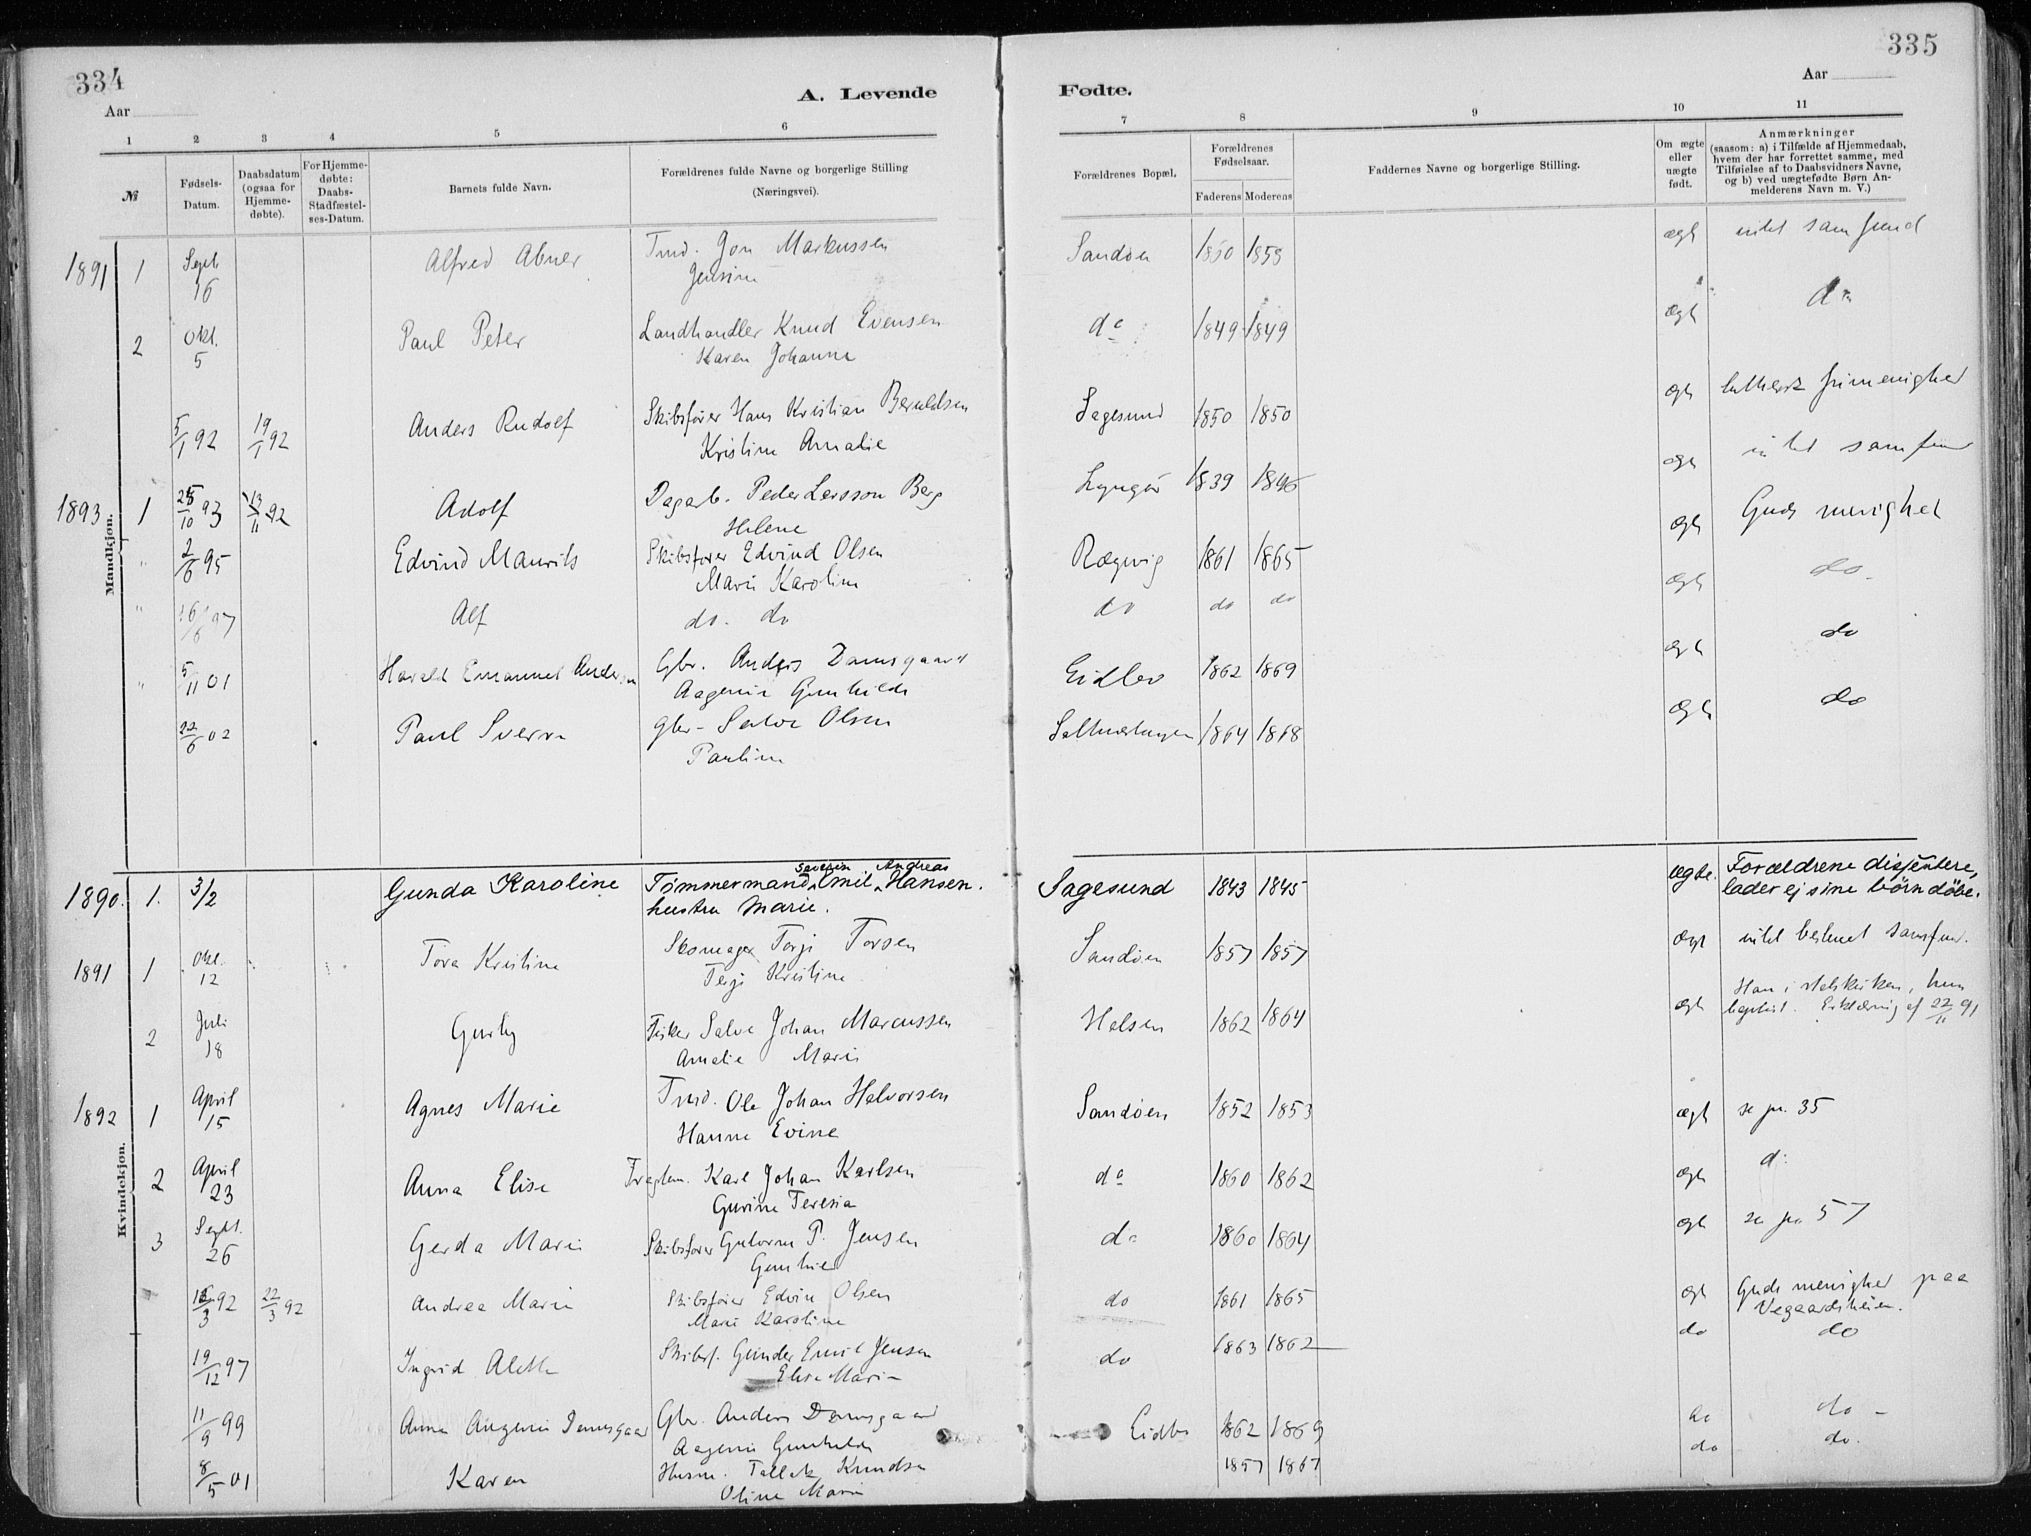 334
Aar
A. Levende
1 2 3 4 5 6
№
Fødsels-
Datum.
Daabsdatum
(ogsaa for
Hjemme-
døbte).
For Hjemme-
døbte:
Daabs-
Stadfæstel-
ses-Datum.
Barnets fulde Navn.
Forældrenes fulde Navne og borgerlige Stilling
(Næringsvei).
335
Aar
Fødte.
7 8 9 10 11
Forældrenes Bopæl.
Forældrenes
Fødselsaar.
Faderens Moderens
Faddernes Navne og borgerlige Stilling.
Om ægte
eller
uægte
født.
Anmærkninger
(saasom: a) i Tilfælde af Hjemmedaab,
hvem der har forrettet samme, med
Tilføielse af to Daabsvidners Navne,
og b) ved uægtefødte Børn An-
melderens Navn m. V.)
Mandkjøn.
1891 1 Sept 16 Alfred Abner Tmd. Jon Markussen Sandøen 1860 1859 ægt intet samfund
Jensine
2 Okt. 5 Paul Peter Landhandler Knud Evensen do 1849 1849 ægt do
Karen Johanne
5/1 92 19/1 92 Anders Rudolf Skibsfører Hans Kristian Beruldsen Sagesund 1850 1850 ægt luthersk frimenighed
Kristine Amalie
1893 1 25/10 93 13/11 92 Adolf Dagarb. Peder Larsson Berg Lyngør 1839 1846 ægt intet samfund
Helene
" 2/6 95 Edvind Maurits Skibsfører Edvind Olsen Rægvig 1861 1865 ægt Guds menighet
Marie Karoline
" 16/6 97 Alf do. do do do do ægt do
" 5/11 01 Harald Emanuel Anders Gbr. Anders Damsgaard Eidbo 1862 1869 ægt do
Aagenie Gunhilde
22/6 02 Paul Sverre gbr- Salve Olsen 1864 1868 ægt do
Pauline
Kvindekjøn.
Severin Andreas
1890. 1. 3/2 Gunda Karoline Tømmermand Emil Hansen. Sagesund 1843 1845 ægte. Forældrene dissentere,
hustru Marie. lader ej sine børn døbe.
1891 1 Okt. 12 Tora Kristine Skomager Terje Torsen Sandøen 1857 1857 ægt intet bestemt samfun.
Terje Kristine
2 Juli 18 Gurly Fisker Salve Johan Marcussen Halsen 1862 1864 ægt Han i statskirken, hun
Amalie Marie baptist. Erklæring af 22/11 91
1892 1 April 15 Agnes Marie Tmd. Ole Johan Halvorsen Sandøen 1852 1853 ægt se pr. 35
Hanne Evine
2 April 23 Anna Elise Karl Johan Karlsen do 1860 1862 ægt do
Gurine Teresia
3 Sept. 26 Gerda Marie Skibsfører Gutorm P. Jensen do 1860 1864 ægt se pr. 57
Gunhild
16/3 92 22/3 92 Andrea Marie Skibsfører Edvin Olsen do 1861 1865 ægt Guds menighed paa
Marie Karoline Vegaardsheien.
19/12 97 Ingrid Alette Skibsf. Gunder Emil Jensen do 1863 1862 do do
Elise Marie
11/9 99 Anna Augenie Damsgaar Gbr. Anders Damsgaard Eidbo 1862 1869 do do
Aagenie Gunhilde
8/5 01 Karen Husm. Tallak Knudsen 1857 1867 do do.
Oline Marie